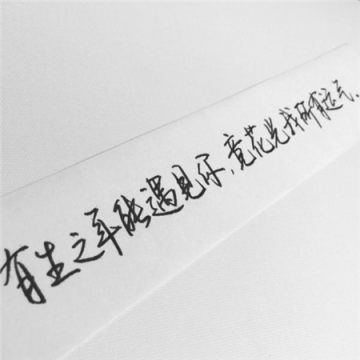 有生之年能遇见你，竟花光我所有运气.